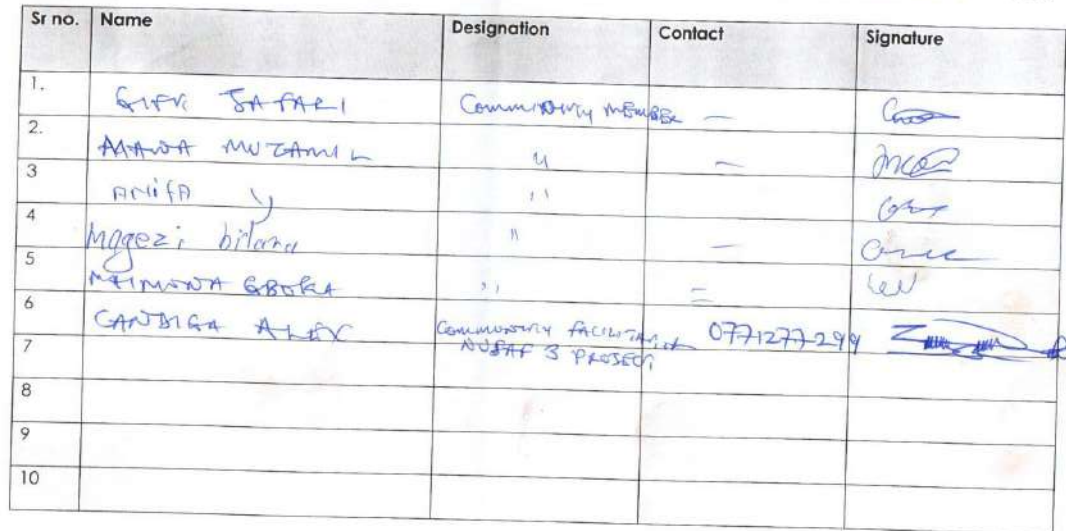 Sr no. Name Designation Contact Signature
1. GIFT SAFARI Community MEMBER —
2. MUZAMIL " —
3 ANIFA Y "
4 Magezi bilana " —
5 MAIMUNA GBOKA " =
6 CANDIGA ALEX COMMUNITY FACILITATOR 0771277299
7 NUSAF 3 PROJECT
8
9
10